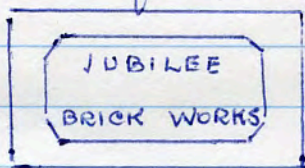 JUBILEE
BRICK WORKS